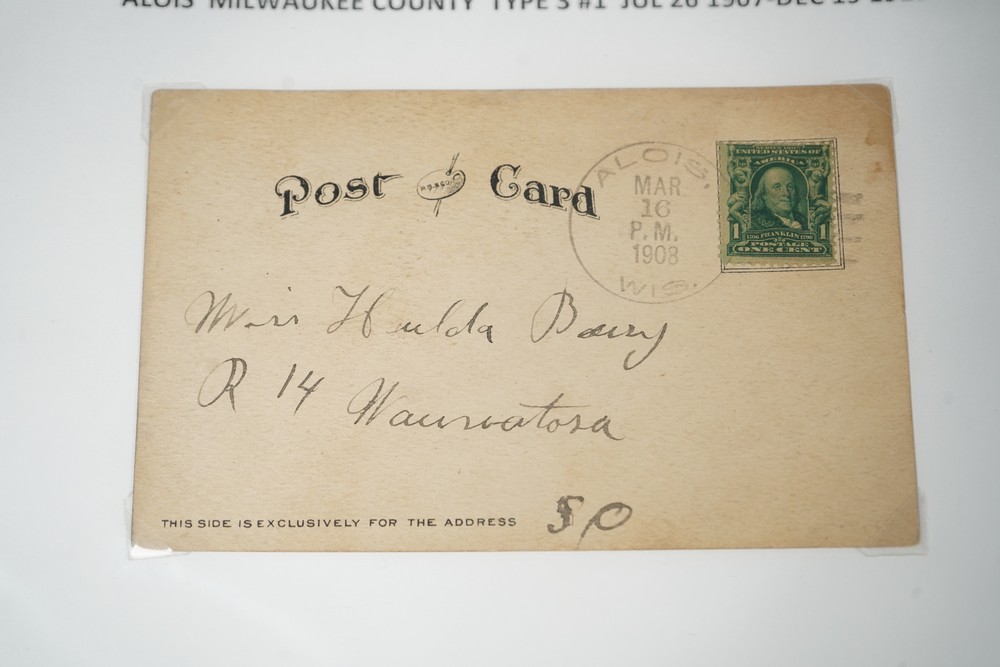 ALOIS MILWAUKEE COUNTY TYPE S #1 JUL 26 1907-DEC 15
Post Card
ALOIS.
MAR
16
P.M.
1908
WIS.
UNITED STATES OF
AMERICA
1 FRANKLIN 1
POSTAGE
ONE CENT
Miss Hulda
R 14 Wauwatosa
THIS SIDE IS EXCLUSIVELY FOR THE ADDRESS
50